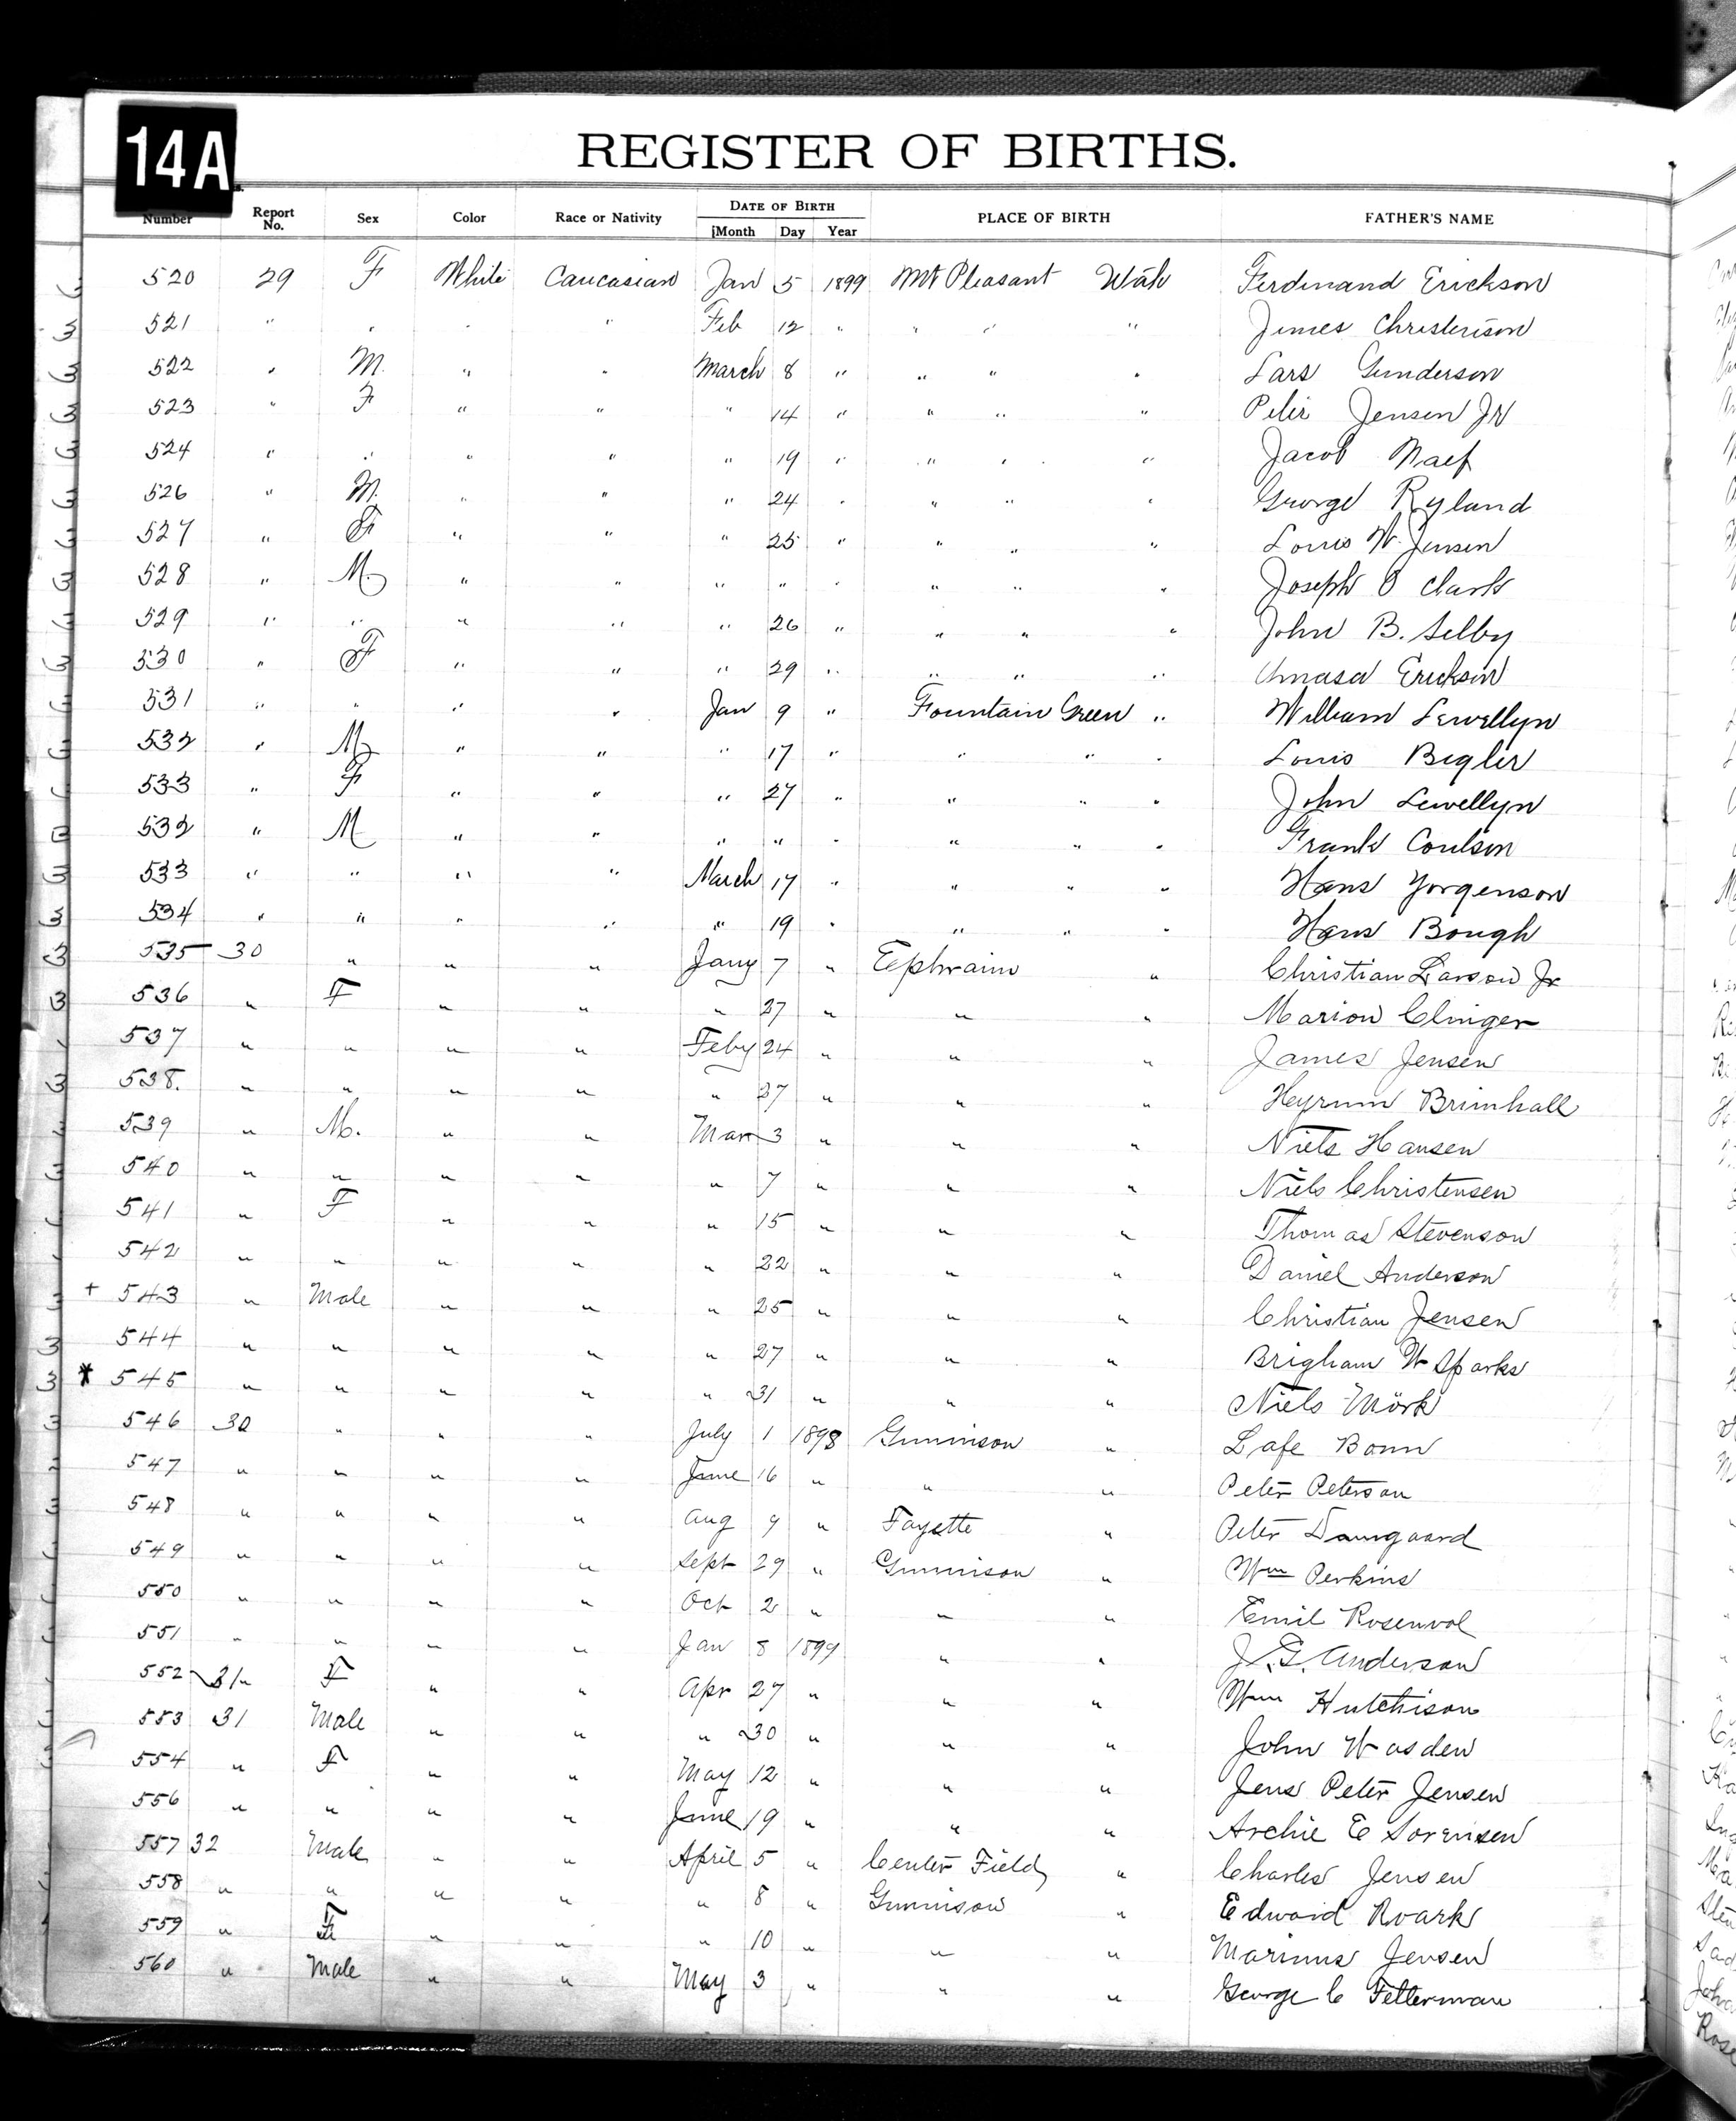 14A
REGISTER OF BIRTHS.
Number Report No. Sex Color Race or Nativity DATE OF BIRTH Month Day Year PLACE OF BIRTH FATHER'S NAME
520 29 F White Caucasian Jan 5 1899 Mt Pleasant Utah Ferdinand Erickson
521 " " " " Feb 12 " " " " James Christenson
522 " M. " " March 8 " " " " Lars Gunderson
523 " F " " " 14 " " " " Peter Jensen Jr
524 " " " " " 19 " " " " Jacob Naef
526 " M. " " " 24 " " " " George Ryland
527 " F " " " 25 " " " " Louis W. Jensen
528 " M. " " " " " " " " Joseph O Clark
529 " " " " " 26 " " " " John B. Selby
530 " F " " " 29 " " " " Amasa Erickson
531 " " " " Jan 9 " Fountain Green " William Lewellyn
532 " M " " " 17 " " " " Louis Bigler
533 " F " " " 27 " " " " John Lewellyn
532 " M " " " " " " " " Frank Coulson
533 " " " " March 17 " " " " Hans Yorgenson
534 " " " " " 19 " " " " Hans Bough
535 30 " " " Jany 7 " Ephraim " Christian Larson Jr
536 " F " " " 27 " " " Marion Clinger
537 " " " " Feby 24 " " " James Jensen
538. " " " " " 27 " " " Heyrum Brimhall
539 " M. " " Mar 3 " " " Niels Hansen
540 " " " " " 7 " " " Niels Christensen
541 " F " " " 15 " " " Thomas Stevenson
542 " " " " " 22 " " " Daniel Anderson
+ 543 " Male " " " 25 " " " Christian Jensen
544 " " " " " 27 " " " Brigham W Sparks
* 545 " " " " " 31 " " " Niels Mörk
546 30 " " " July 1 1898 Gunnison " Lafe Bown
547 " " " " June 16 " " " Peter Peterson
548 " " " " Aug 9 " Fayette " Peter Damgaard
549 " " " " Sept 29 " Gunnison " Wm Perkins
550 " " " " Oct 2 " " " Emil Rosenvol
551 " " " " Jan 8 1899 " " J. G. Anderson
552 31 " F " " Apr 27 " " " Wm Hutchison
553 31 Male " " " 30 " " " John Wasden
554 " F " " May 12 " " " Jens Peter Jensen
556 " " " " June 19 " " " Archie E Sorensen
557 32 Male " " April 5 " Center Field " Charles Jensen
558 " " " " " 8 " Gunnison " Edward Roark
559 " F " " " 10 " " " Marinus Jensen
560 " Male " " May 3 " " " George C Fetterman